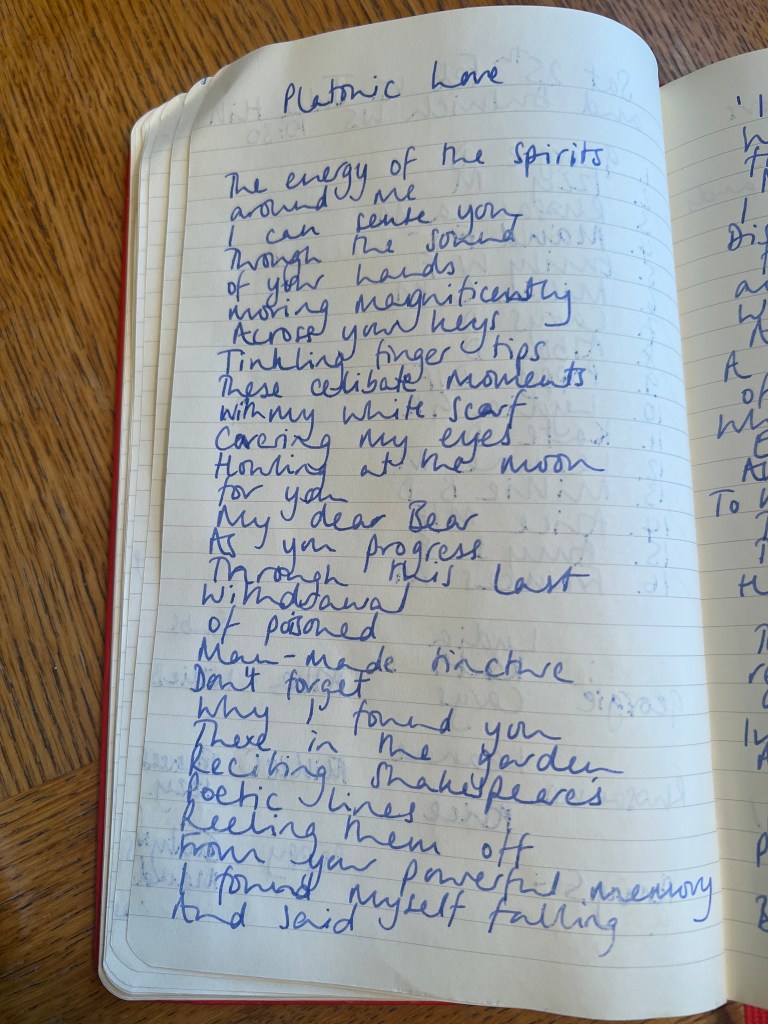 Platonic Love
The energy of the spirits
around me
I can sense you
Through the sound
of your hands
moving magnificently
Across your keys
Tinkling finger tips
These celibate moments
with my white scarf
Covering my eyes
Howling at the moon
for you
My dear Bear
As you progress
Through this last
Withdrawal
of poisoned
Man-made tincture
Don't forget
Why I found you
There in the garden
Reciting Shakespeare's
Poetic lines
Reeling them off
From your powerful memory
I found myself falling
And said